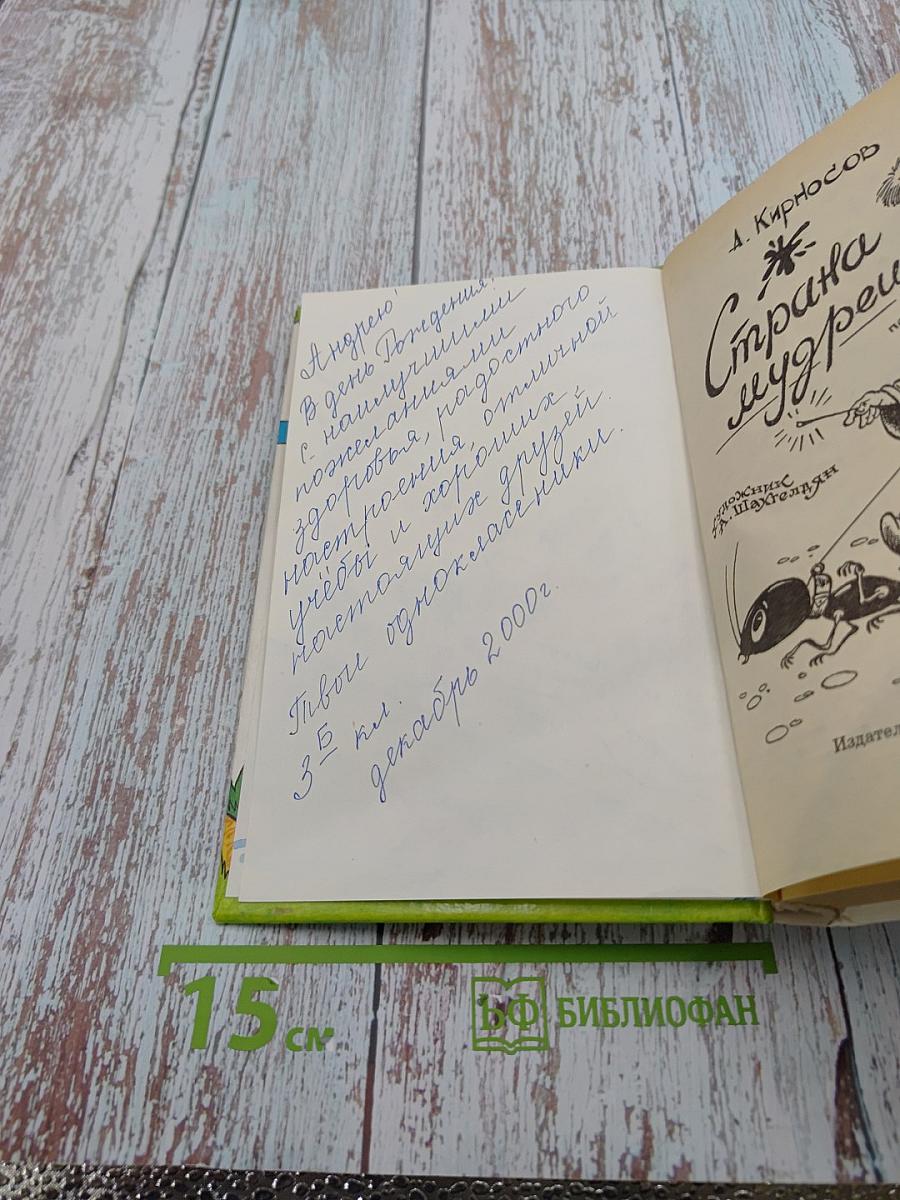 Андрею!
В день Рождения!
с наилучшими
пожеланиями
здоровья, радостного
настроения, отличной
учёбы и хороших
настоящих друзей.
Твои одноклассники.
3 Б кл.
декабрь 2000г.
А. Кирносов
Страна
мудрец
художник
А. Шахгелдян
Издател
15 см
БФ БИБЛИОФАН